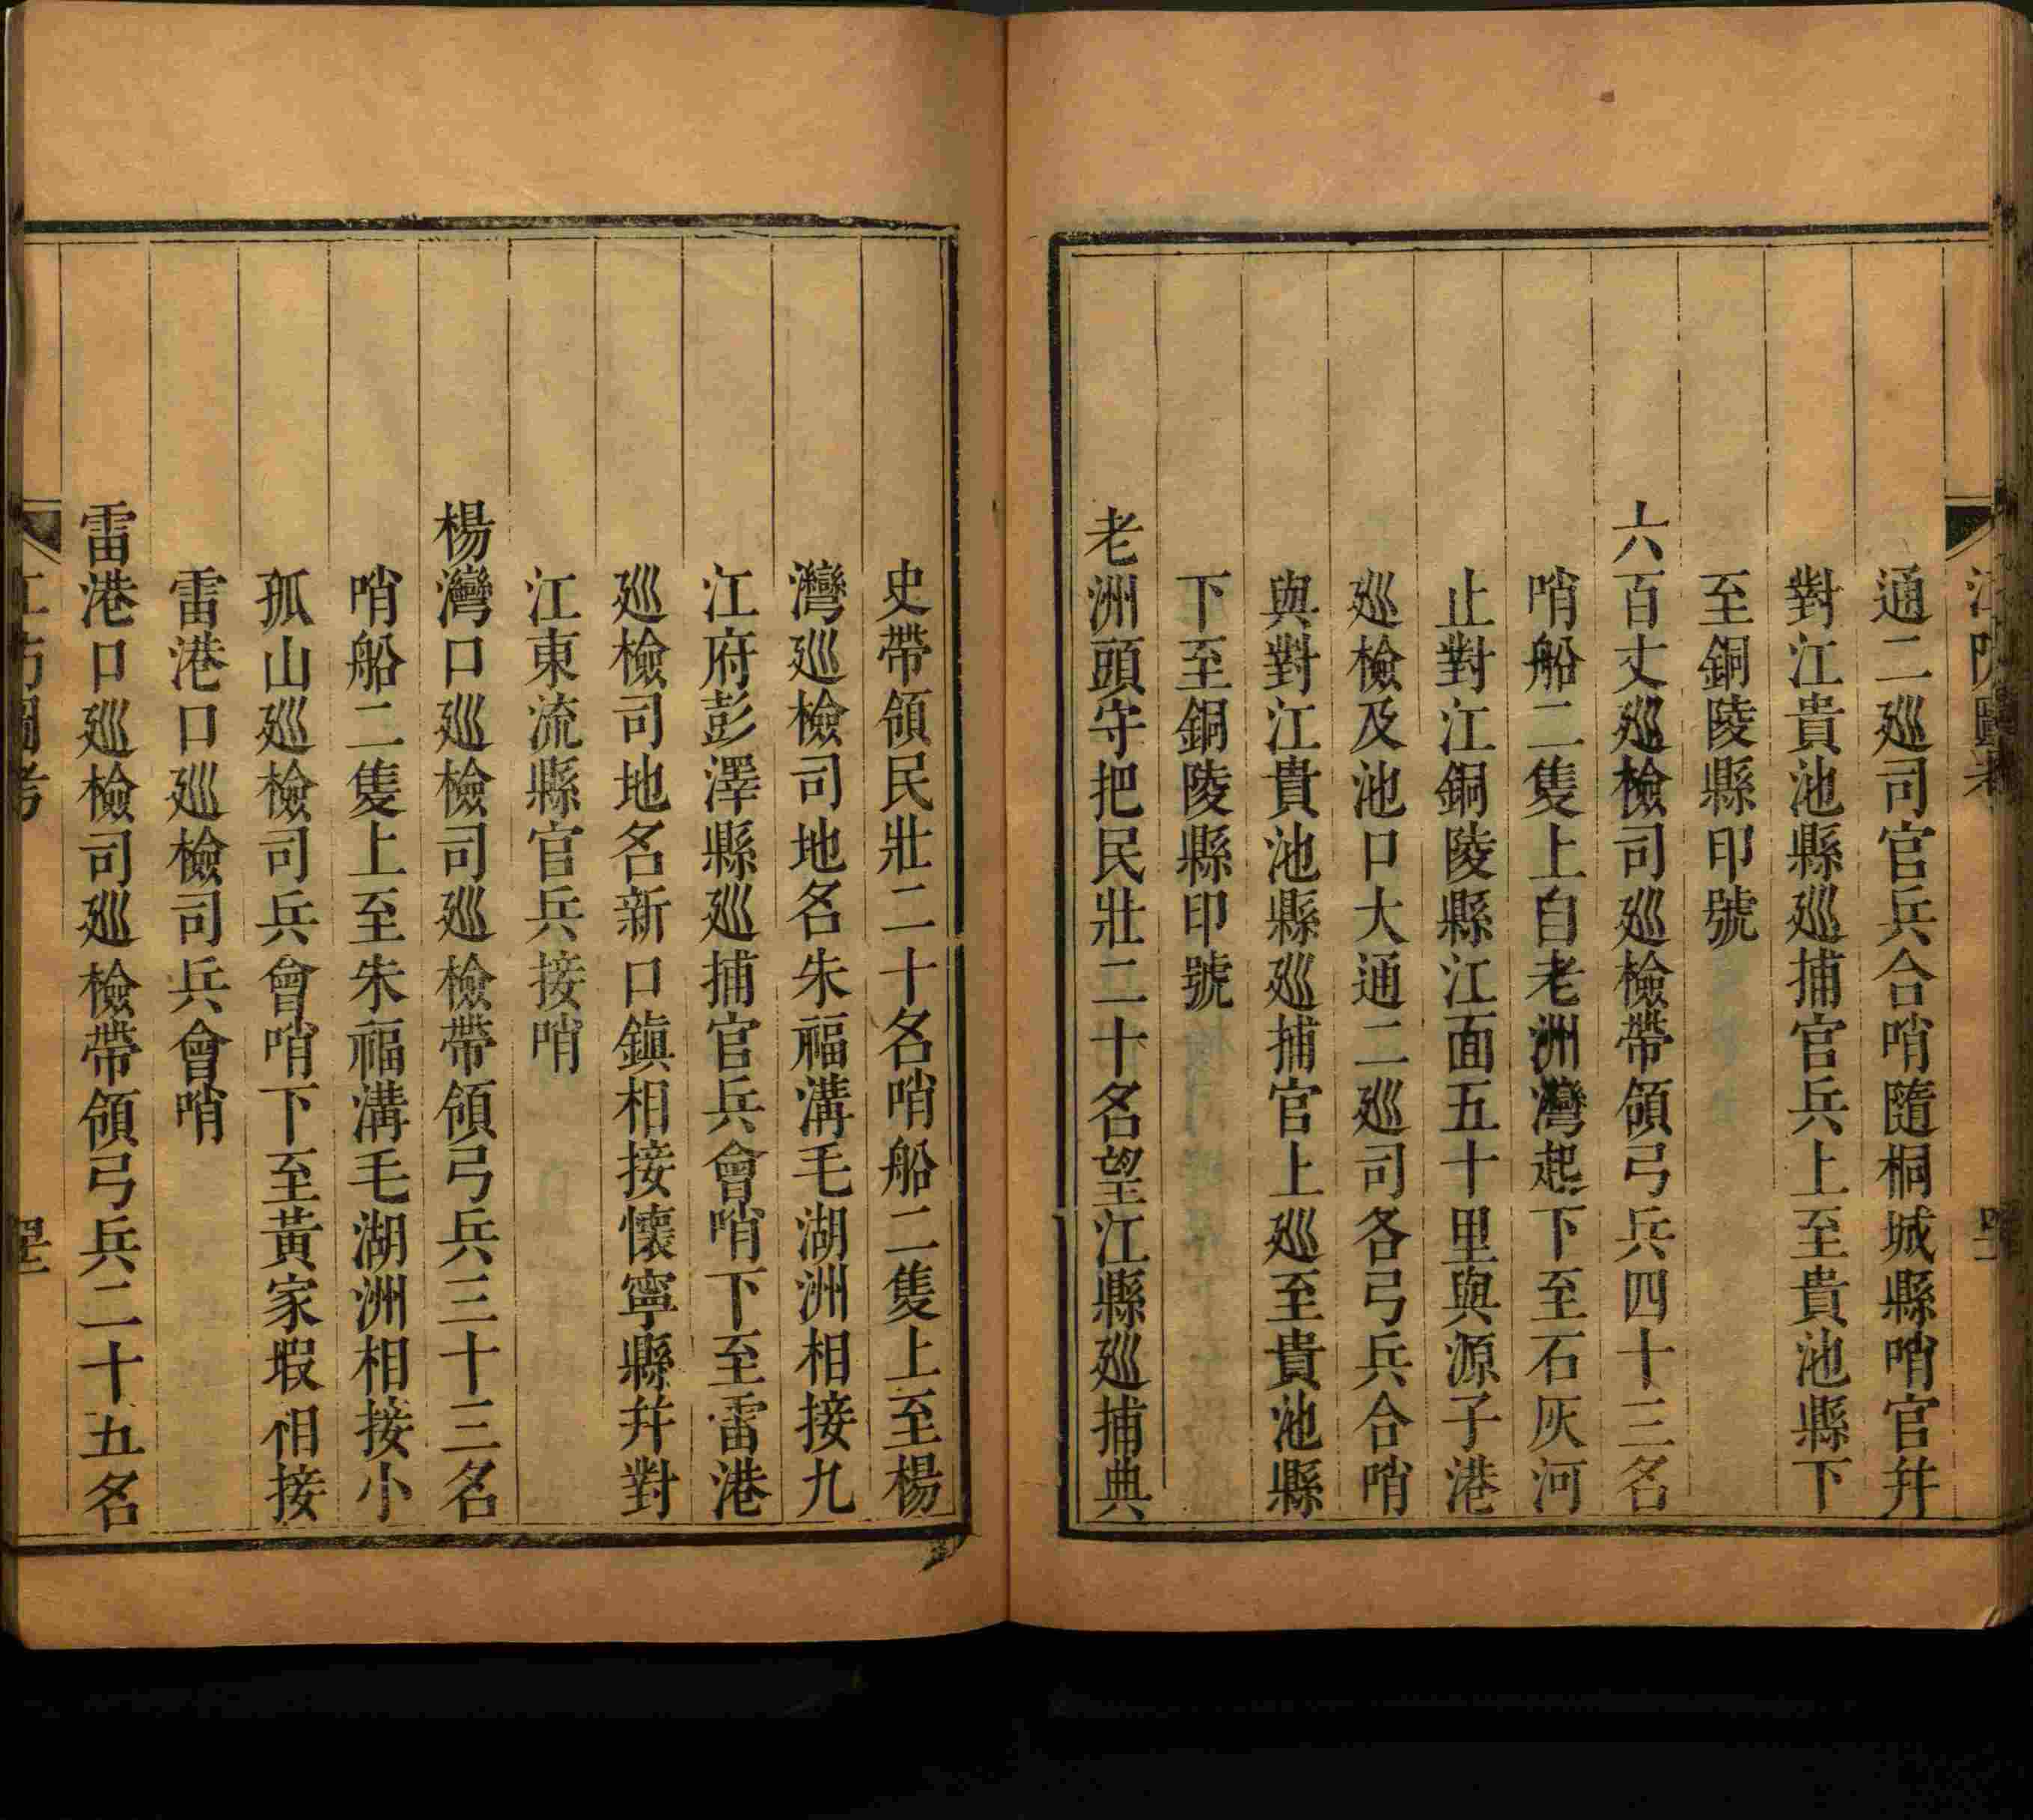 通二廵司官兵合哨隨桐城縣哨官幷
對江貴池縣廵捕官兵上至貴池縣下
至銅陵縣印號
六百丈廵檢司廵檢帶領弓兵四十三名
哨船二隻上自老洲灣起下至石灰河
止對江銅陵縣江面五十里與源子港
廵檢及池口大通二廵司各弓兵合哨
與對江貴池縣廵捕官上廵至貴池縣
下至銅陵縣印號
老洲頭守把民壯二十名望江縣廵捕典
史帶領民壯二十名哨船二隻上至楊
灣廵檢司地名朱福溝毛湖洲相接九
江府彭澤縣廵捕官兵會哨下至雷港
廵檢司地名新口鎭相接懷寧縣幷對
江東流縣官兵接哨
楊灣口廵檢司廵檢帶領弓兵三十三名
哨船二隻上至朱福溝毛湖洲相接小
孤山廵檢司兵會哨下至黃家㘓相接
雷港口廵檢司兵會哨
雷港口廵檢司廵檢帶領弓兵二十五名
江防圖考